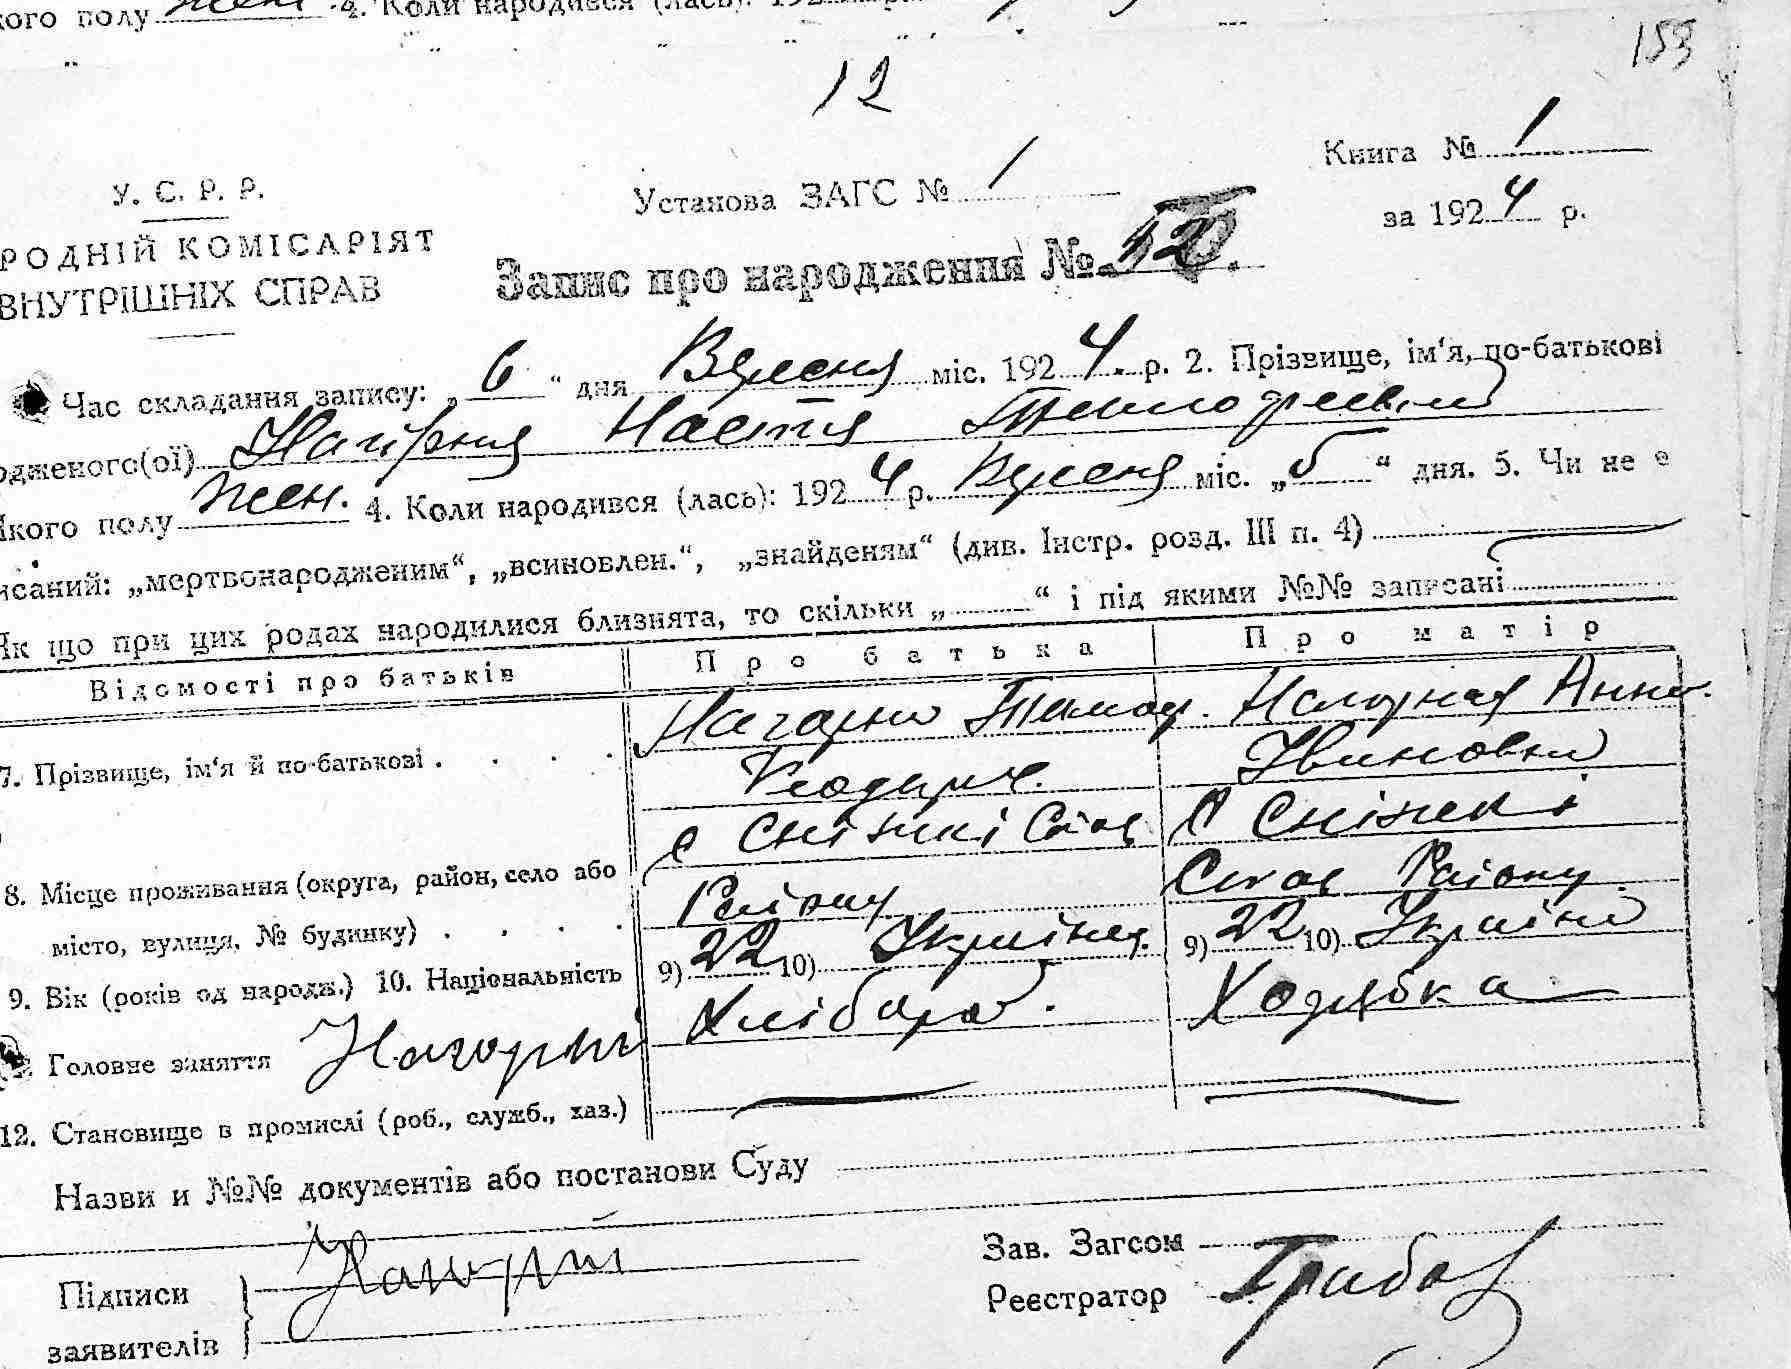 кого полу жен. 2. Коли народився (лась): 192
153
12
Книга № 1
У. С. Р. Р.
Установа ЗАГС № 1
за 1924 р.
РОДНІЙ КОМІСАРІЯТ
ВНУТРІШНІХ СПРАВ
Запис про народження № 12.
Час складання запису: „ 6 “ дня Вересня міс. 1924. р. 2. Прізвище, ім‘я, по-батькові
одженого(ої) Нагірня Настя
якого полу жен. 4. Коли народився (лась): 1924 р. Вересня міс. „ 5 “ дня. 5. Чи не є
исаний: „мертвонародженим“, „всиновлен.“, „знайденям“ (див. Інстр. розд. ІІІ п. 4)
Як що при цих родах народилися близнята, то скільки „ “ і під якими №№ записані
Відомості про батьків Про батька Про матір
7. Прізвище, ім‘я й по-батькові Анна
Івановна
с Сніжкі с Сніжкі
8. Місце проживання (округа, район, село або Району
місто, вулиця, № будинку) Району
9. Вік (років од народж.) 10. Національність 9) 22 10) 9) 22 10)
Головне заняття Нагорний Хлібороб. Хозяйка
12. Становище в промислі (роб., служб., хаз.)
Назви и №№ документів або постанови Суду
Підписи
заявителів
Зав. Загсом
Реєстратор